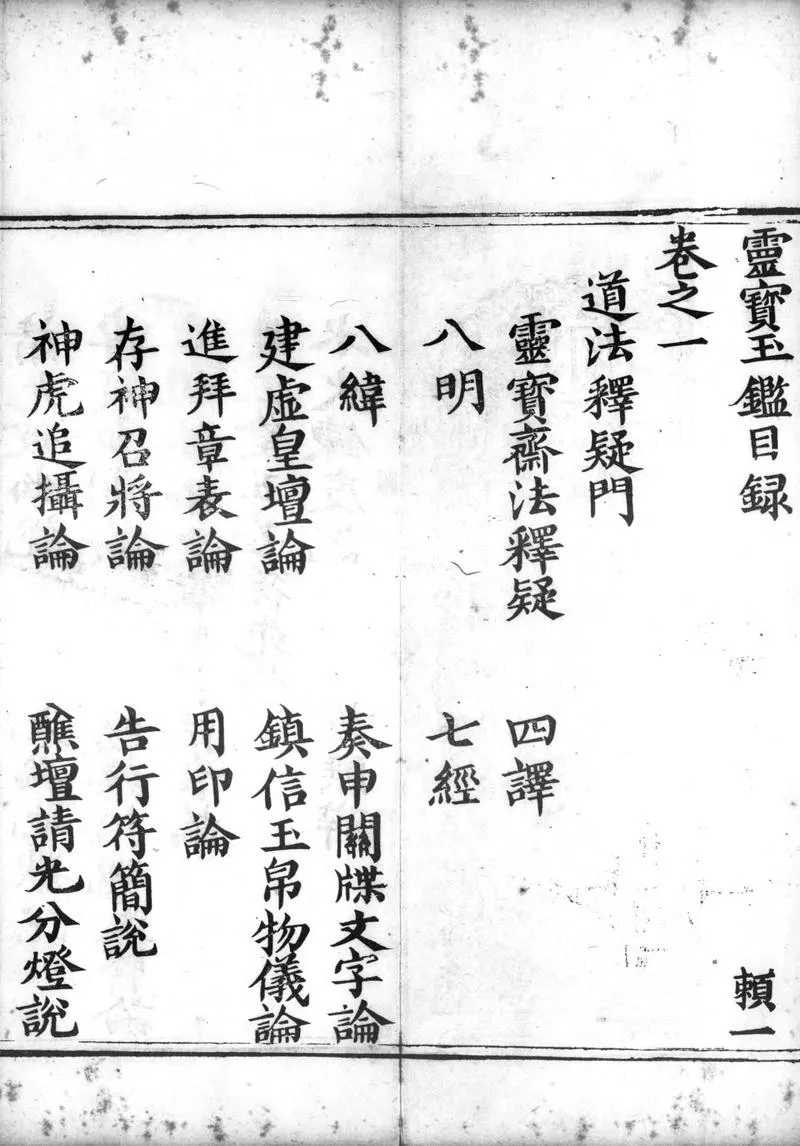 靈寳玉鑑目録 頼一
卷之一
道法釋疑門
靈寳齋法釋疑 四譯
八明 七經
八緯 奏申關牒文字論
建虚皇壇論 鎮信玉帛物儀論
進拜章表論 用印論
存神召將論 告行符簡說
神虎追攝論 醮壇請光分燈說